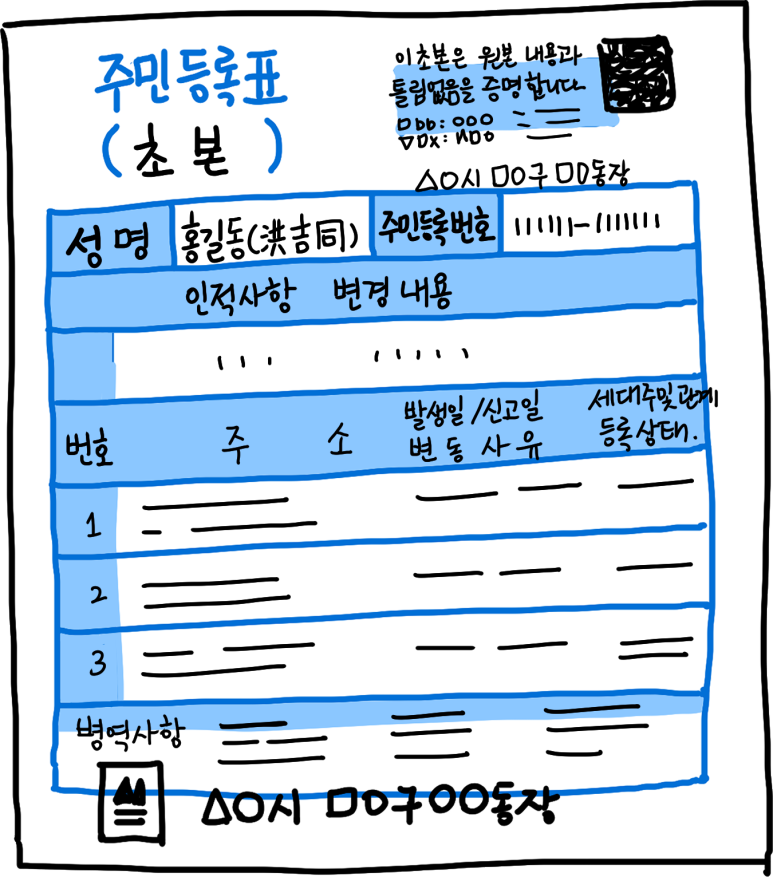 주민등록표
(초본)
이초본은 원본 내용과
틀림없음을 증명합니다.
△○시 □○구 □□동장
성명 홍길동(洪吉同) 주민등록번호 111111-1111111
인적사항 변경 내용
번호 주 소 발생일/신고일 변동사유 세대주및관계 등록상태.
1
2
3
병역사항
△○시 □○구○○동장